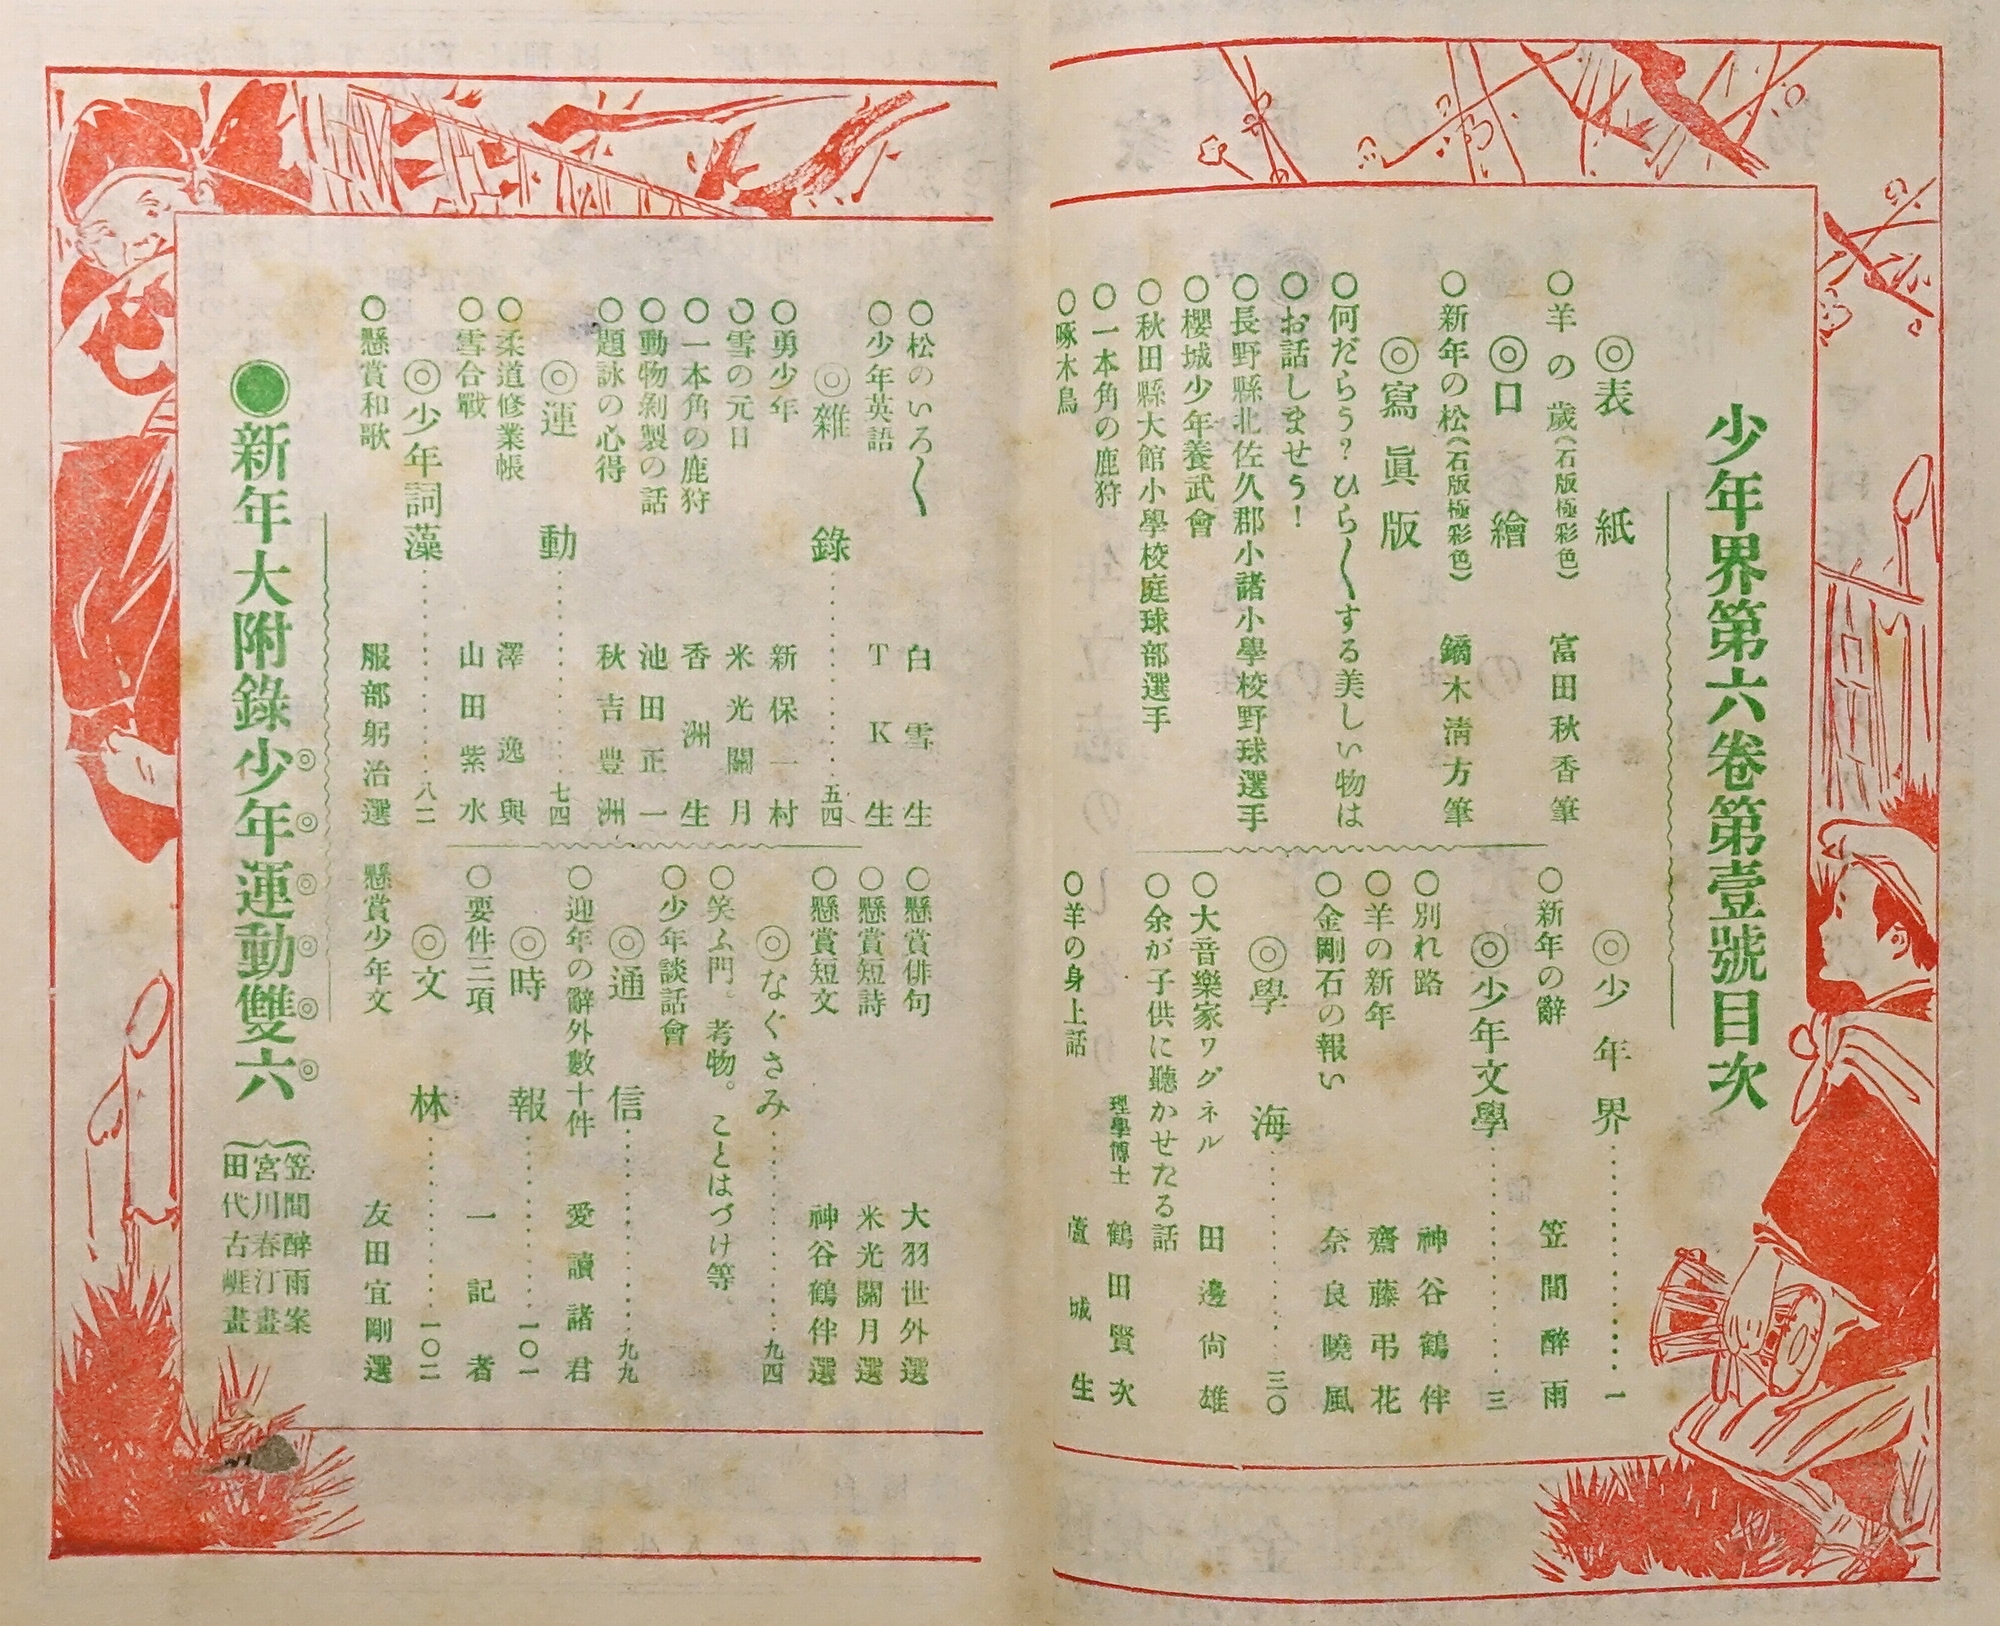 少年界第六卷第壹號目次
◎表紙
○羊の歲(石版極彩色) 富田秋香筆
◎口繪
○新年の松(石版極彩色) 鏑木淸方筆
◎寫眞版
○何だらう?ひら〱する美しい物は
○お話しませう!
○長野縣北佐久郡小諸小學校野球選手
○櫻城少年養武會
○秋田縣大館小學校庭球部選手
○一本角の鹿狩
○啄木鳥
◎少年界 一
○新年の辭 笠間醉雨
◎少年文學 三
○別れ路 神谷鶴伴
○羊の新年 齋藤弔花
○金剛石の報い 奈良曉風
◎學海 三〇
○大音樂家ワグネル 田邊尙雄
○余が子供に聽かせたる話
理學博士 鶴田賢次
○羊の身上話 蘆城生
○松のいろ〱 白雪生
○少年英語 TK生
◎雜錄 五四
○勇少年 新保一村
○雪の元日 米光關月
○一本角の鹿狩 香洲生
○動物剝製の話 池田正一
○題詠の心得 秋吉豊洲
◎運動 七四
○柔道修業帳 澤逸與
○雪合戰 山田紫水
◎少年詞藻 八二
○懸賞和歌 服部躬治選
○懸賞俳句 大羽世外選
○懸賞短詩 米光關月選
○懸賞短文 神谷鶴伴選
◎なぐさみ 九四
○笑ふ門。考物。ことはづけ等
○少年談話會
◎通信 九九
○迎年の辭外數十件 愛讀諸君
◎時報 一〇一
○要件三項 一記者
◎文林 一〇二
懸賞少年文 友田宜剛選
●新年大附錄少年運動雙六
笠間醉雨案
宮川春汀畫
田代古崕畫